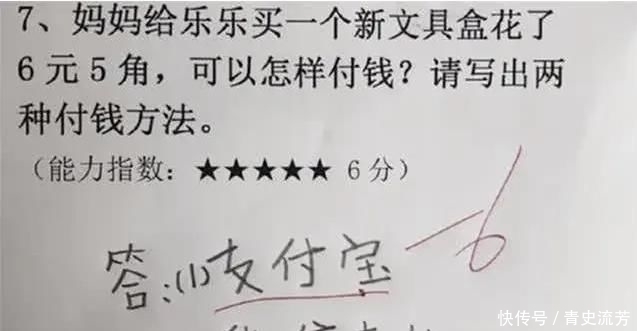 7、妈妈给乐乐买一个新文具盒花了
6元5角，可以怎样付钱？请写出两
种付钱方法。
（能力指数：★★★★★ 6分）
答:(1)支付宝 -6
快传号／青史流芳